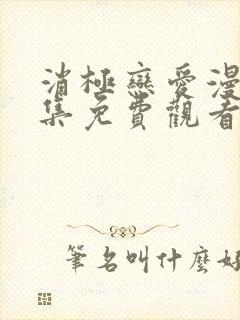 消極戀愛漫
集免費觀看
筆名叫什麼好